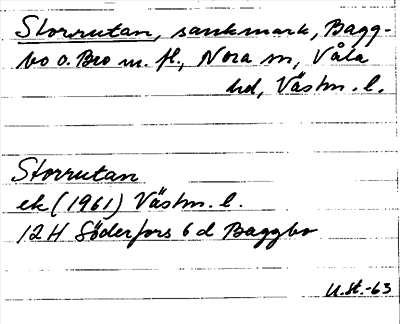 Storrutan, sankmark, Bagg-
bo o. Bro m. fl., Nora sn, Våla
hd, Västm. l.
Storrutan
ek (1961) Västm. l.
12H Söderfors 6 d Baggbo
U.St.-63